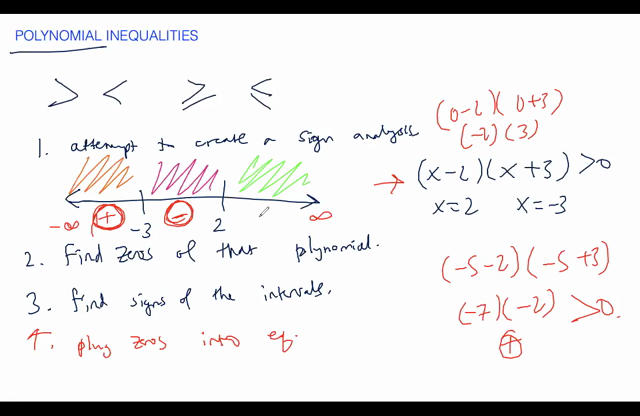 POLYNOMIAL INEQUALITIES
> < ≥ ≤
1. attempt to create a sign analysis
-∞ + -3 - 2 ∞
2. Find zeros of that polynomial.
3. find signs of the intervals.
plug zeros into eq.
(0-2)(0+3)
(-2)(3)
→ (x-2)(x+3)>0
x=2 x=-3
(-5-2)(-5+3)
(-7)(-2) >0.
+